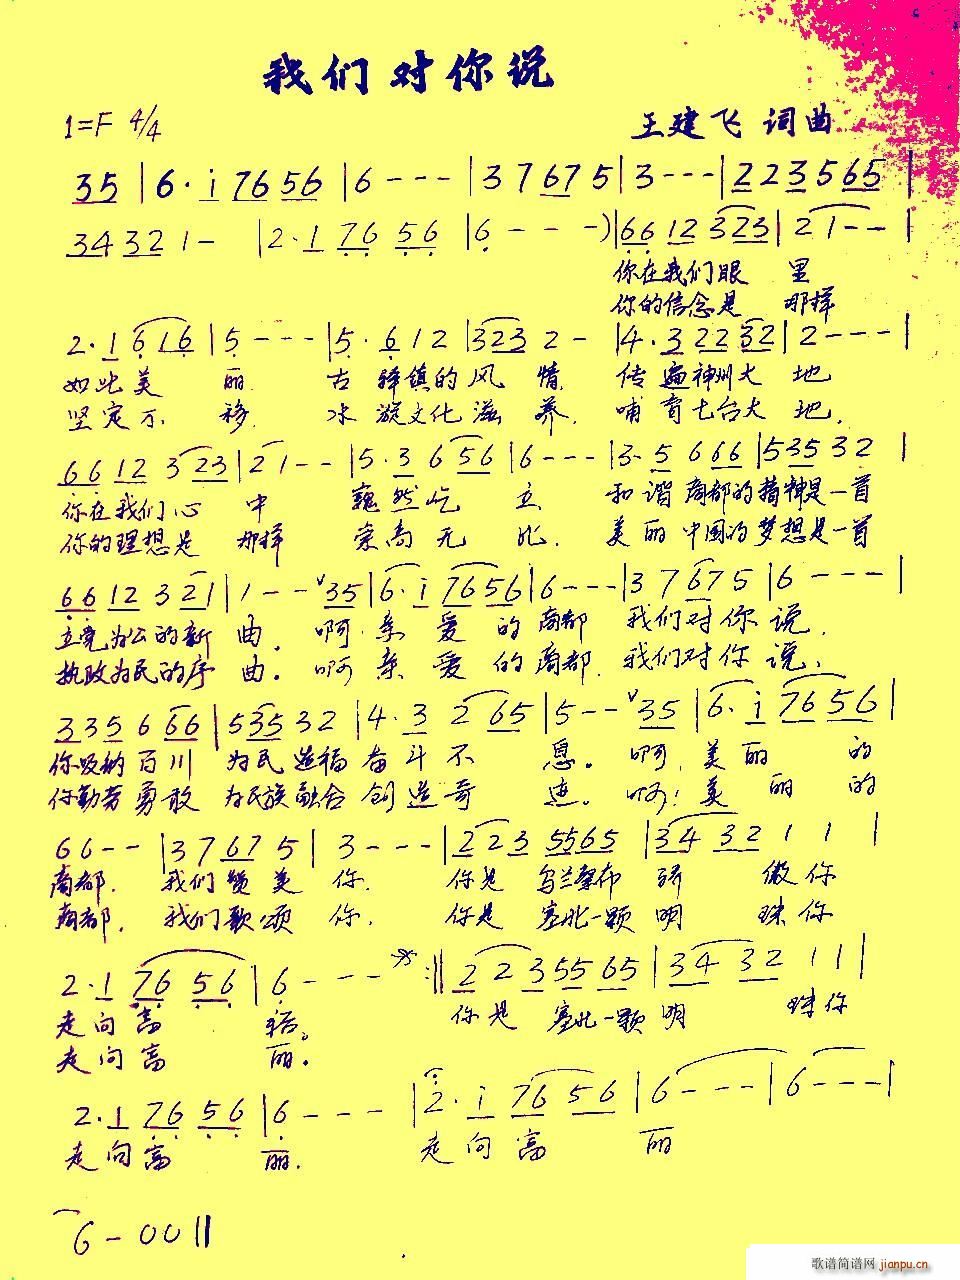 我们对你说
1=F 4/4
王建飞 词曲
35 | 6·i 7656 | 6--- | 37675 | 3--- | 223565 |
34321- | 2·17656 | 6---) | 6612323 | 21-- |
你在我们眼 里
你的信念是 那样
2·1616 | 5--- | 5·612 | 3232- | 4·32232 | 2--- |
如此美 丽. 古 驿镇的风 情, 传遍神州大 地
坚定不 移, 水漩文化滋 养, 哺育七台大 地,
6612323 | 21-- | 5·3656 | 6--- | 3·5666 | 53532 |
你在我们心 中 巍然屹 立, 和谐商都的精神是一首
你的理想是 那样 崇高无 比, 美丽中国的梦想是一首
6612321 | 1--∨35 | 6·i7656 | 6--- | 37675 | 6--- |
立党为公的新 曲。 啊,亲 爱 的商都 我们对你 说,
执政为民的序 曲。 啊 亲 爱 的商都, 我们对你 说,
335666 | 53532 | 4·3265 | 5--∨35 | 6·i7656 |
你吸纳百川 为民造福奋斗不 息。 啊,美丽 的
你勤劳勇敢 为民族融合创造奇 迹。 啊!美丽的
66-- | 37675 | 3--- | 2235565 | 343211 |
商都, 我们赞美 你, 你是乌兰察布 骄 傲你
商都, 我们歌颂 你, 你是塞北一颗明 珠你
2·17656 | 6--- :|| 2235565 | 343211 |
你是塞北一颗明 珠你
走向富 裕。
走向富 丽。
2·17656 | 6--- | 2·i7656 | 6--- | 6--- |
走向富 丽. 走向富 丽
6-00||
歌谱简谱网 jianpu.cn